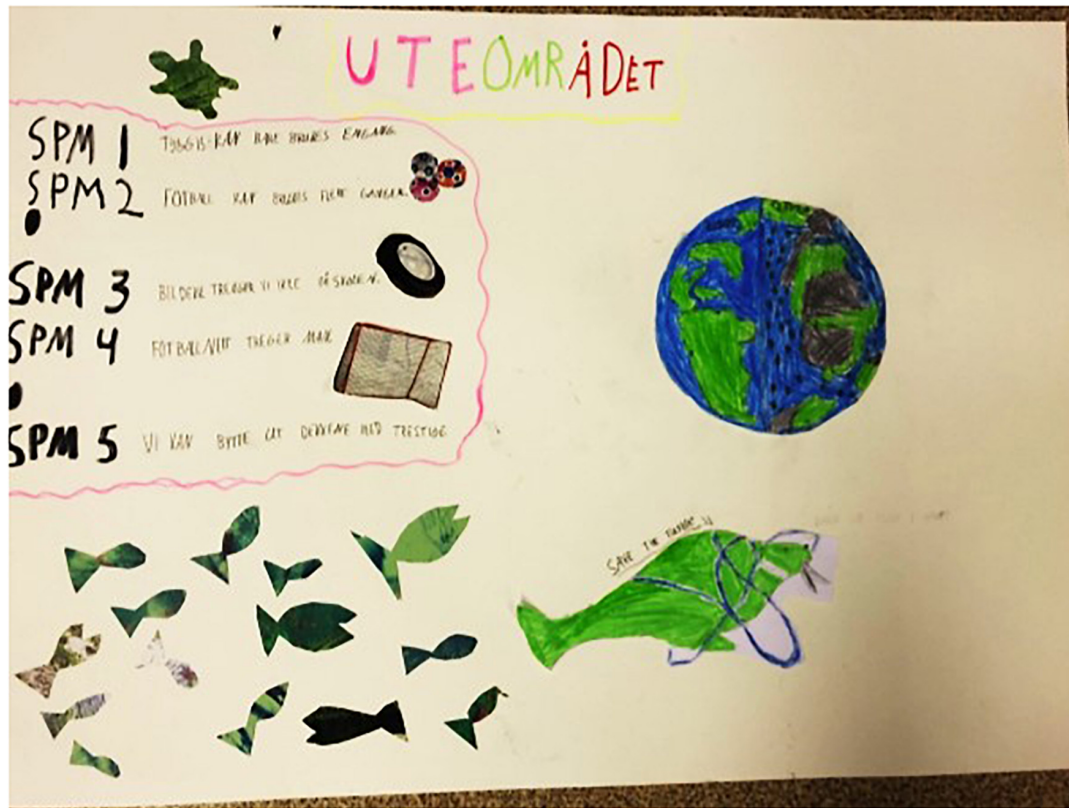 UTEOMRÅDET
SPM 1 TYGGIS KAN BARE BRUKES ENGANG
SPM 2 FOTBALL KAN BRUKES FLERE GANGER.
SPM 3 BILDEKK TRENGER VI IKKE PÅ SKOLEN.
SPM 4 FOTBALLNETT TREGER MAN
SPM 5 VI KAN BYTTE UT DEKKENE MED TRESTIGE
SAVE THE